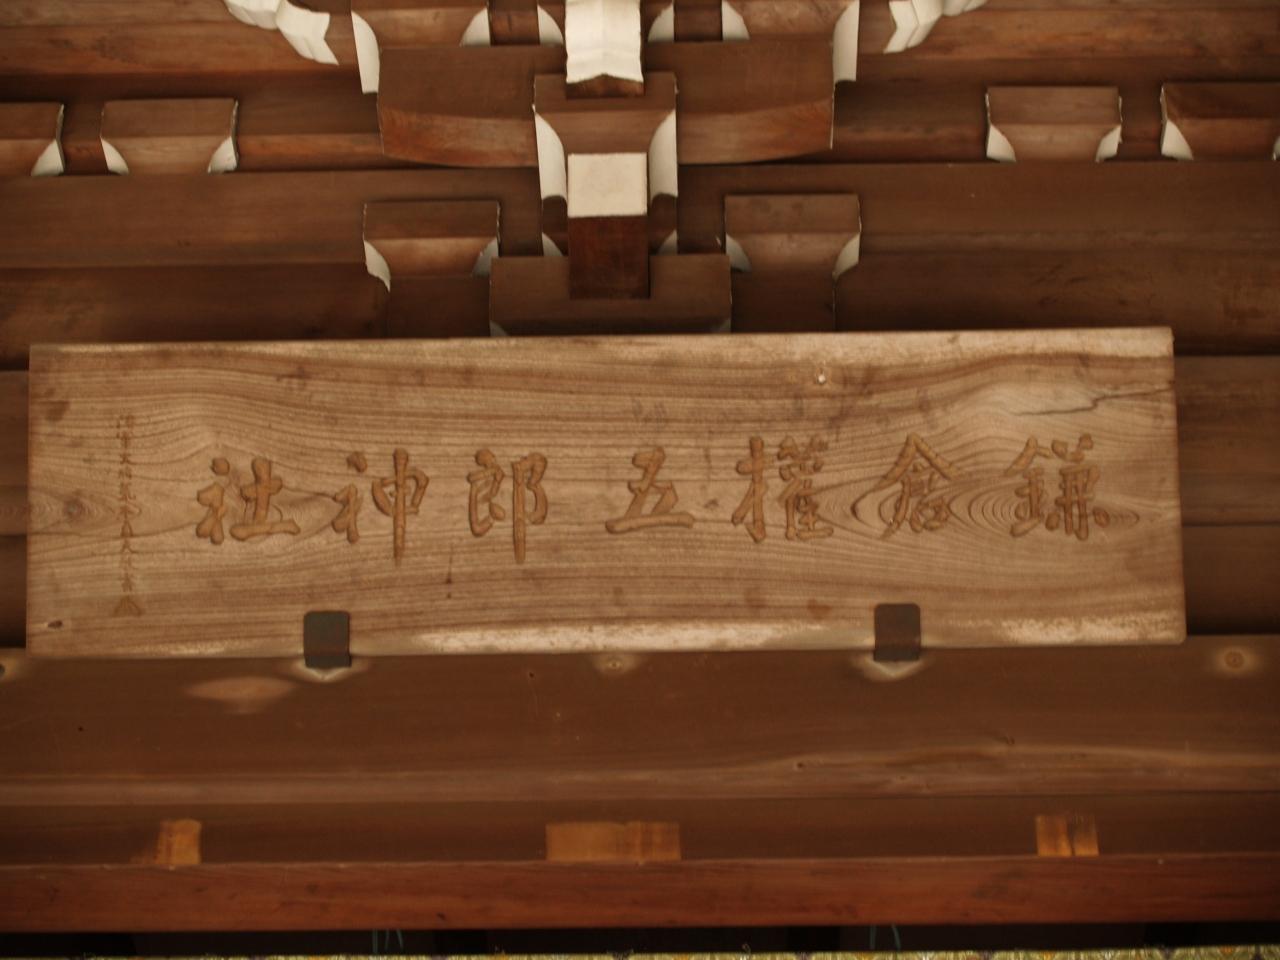 鎌倉權五郎神社